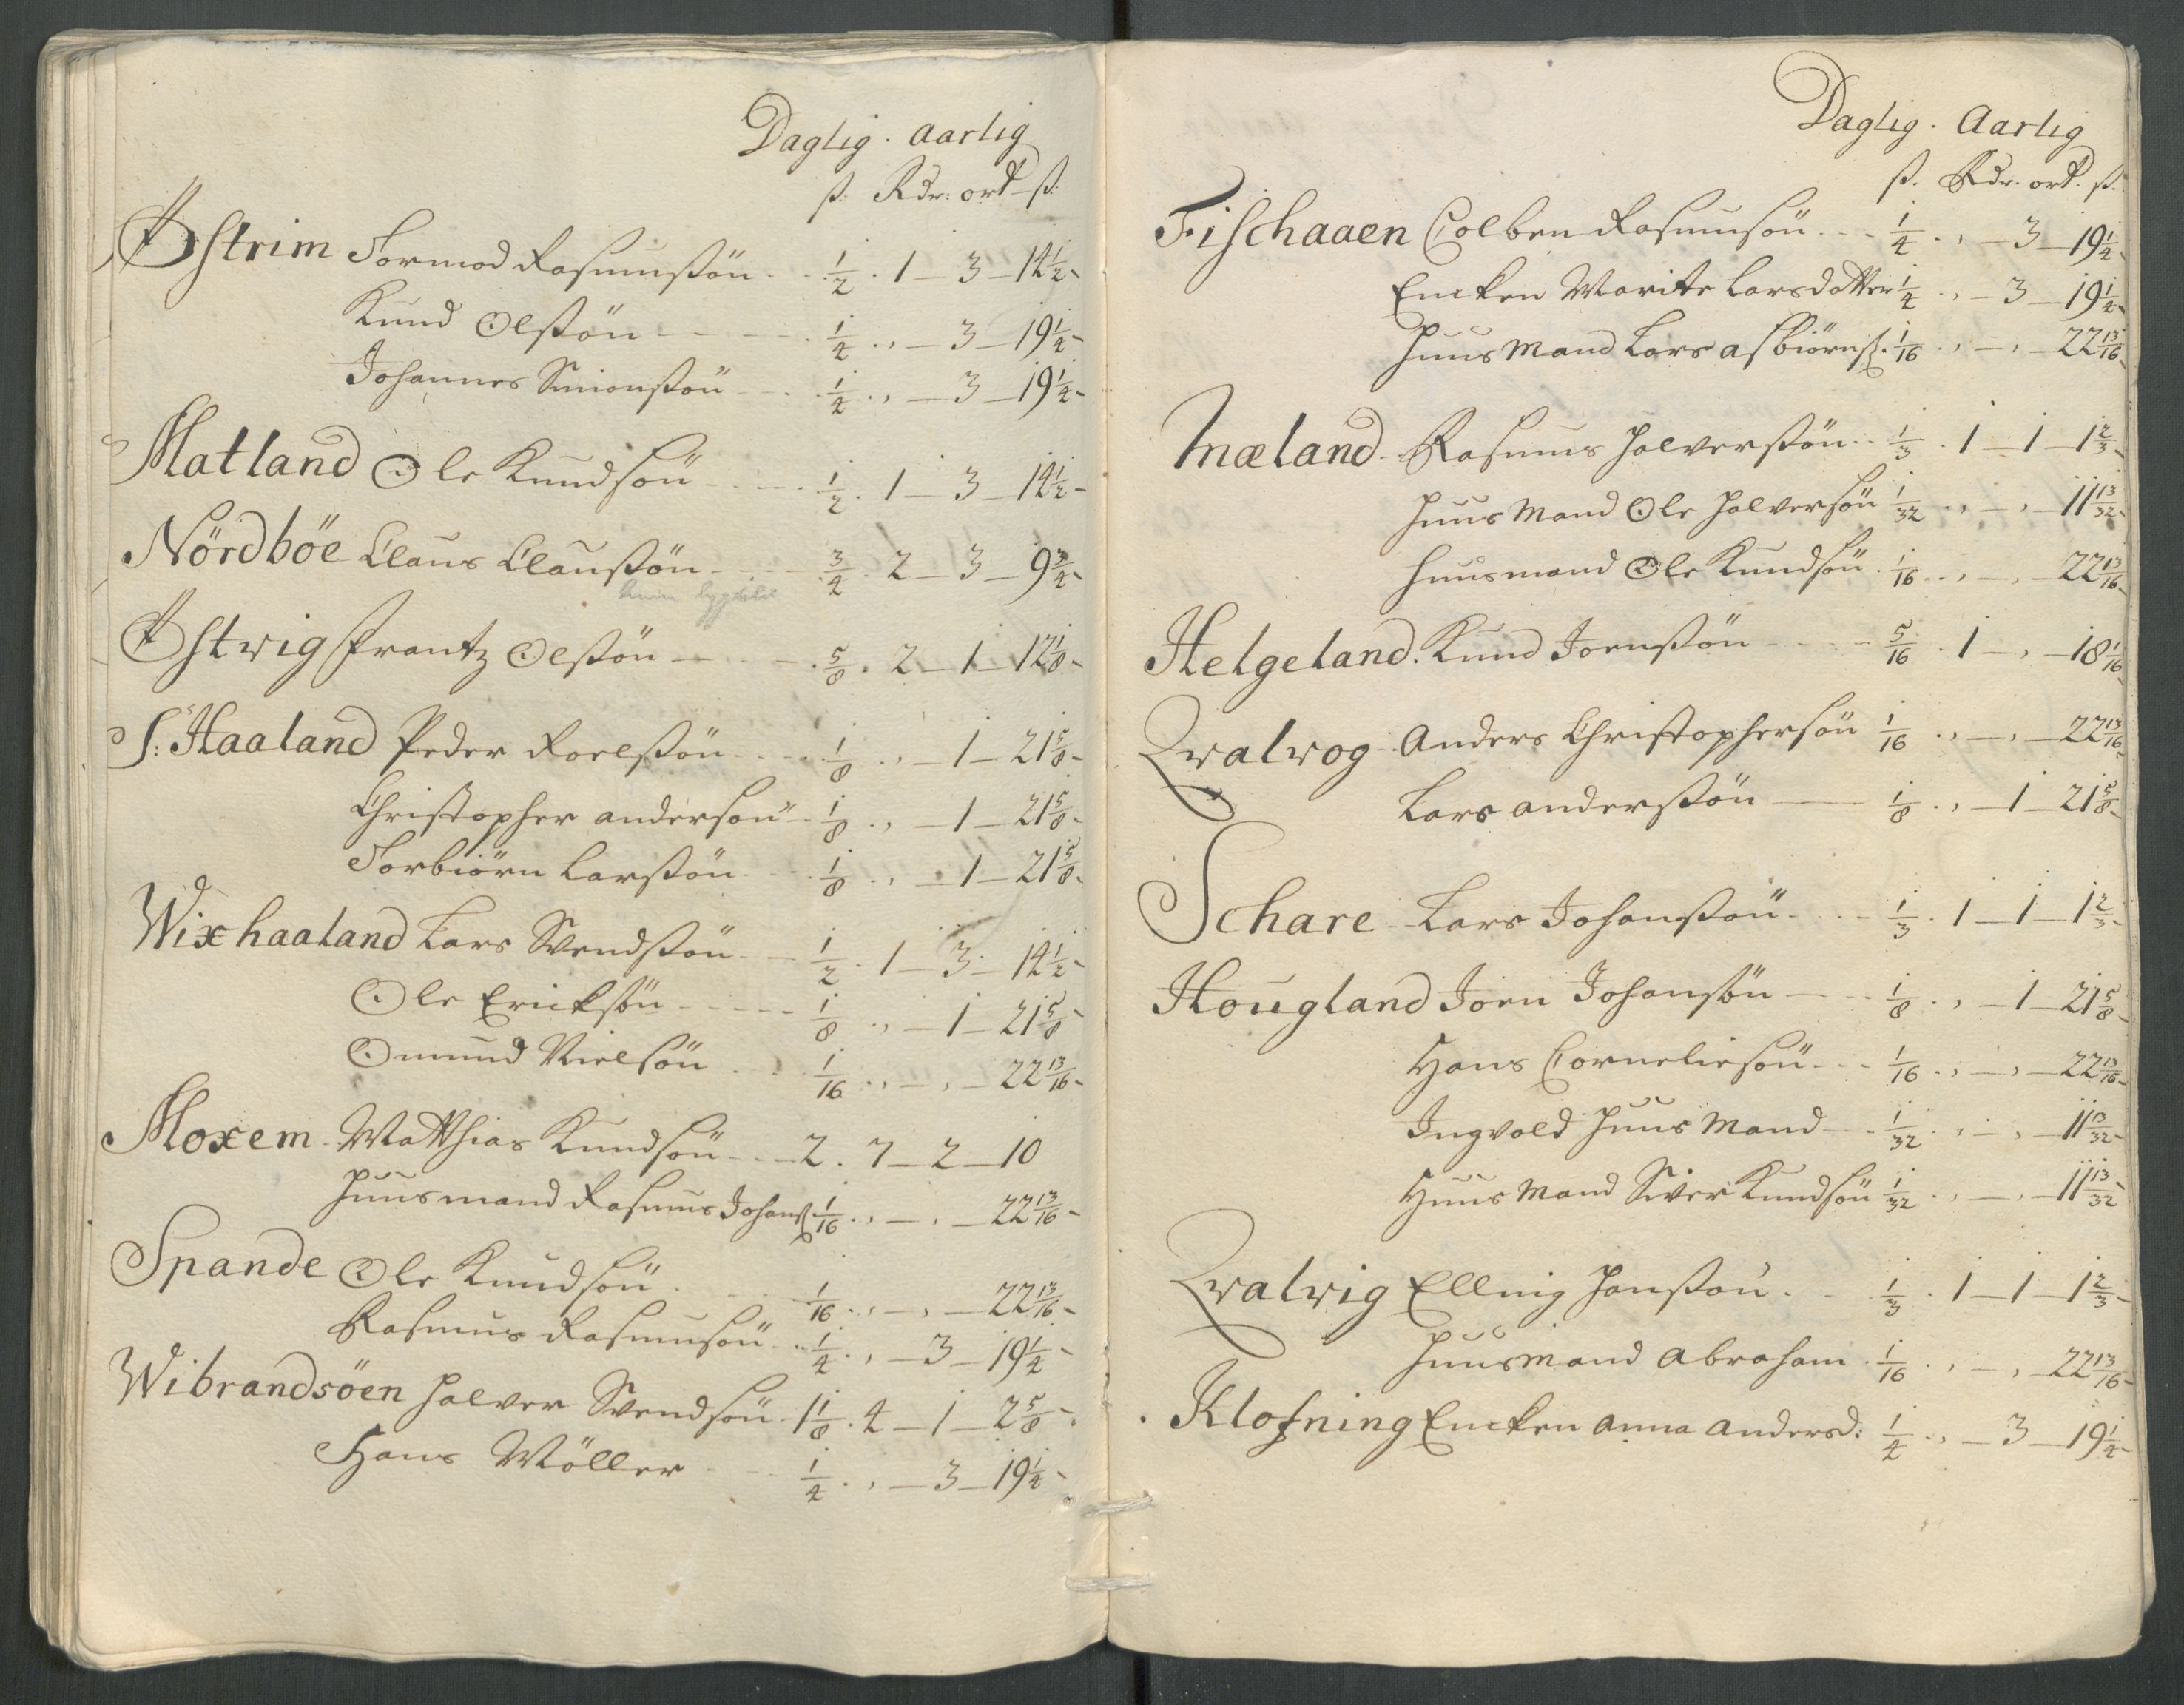 Daglig. aarlig
ß. Rdr: ort ß.
Østrim Tormod Rasmusßön 1/2. 1 – 3 – 14 1/2
Knud Olsßön 1/4. , – 3 – 19 1/4
Johannes Simonßön 1/4. , – 3 – 19 1/4
Matland Ole Knudsön 1/2. 1 – 3 – 14 1/2
Nördböe Claus Claußön 3/4. 2 – 3 – 9 3/4
Østvig Frantz Olsßön 5/8. 2 – 1 – 12 1/8
S: Haaland Peder Roelßön 1/8. , – 1 – 21 5/8
Christopher andersön 1/8. , – 1 – 21 5/8
Torbiörn Larsßön 1/8. , – 1 – 21 5/8
Wixhaaland Lars Svendsßön 1/2. 1 – 3 – 14 1/2
Ole Ericksön 1/8. , – 1 – 21 5/8
Omund Nielsön 1/16. , – , – 22 13/16
Moxem Matthias Knudsön 2. 7 – 2 – 10
huusmand Rasmus Johanß. 1/16. , – , – 22 13/16
Spande Ole Knudsön 1/16. , – , – 22 13/16
Rasmus Rasmusön 1/4. , – 3 – 19 1/4
Wibrandsöen Halver Svendsön 1 1/8. 4 – 1 – 2 5/8
Hans Möller 1/4. , – 3 – 19 1/4
Daglig. Aarlig
ß. Rdr. ort. ß.
Fischaaen Colben Rasmusön 1/4. , – 3 – 19 1/4
Encken Marite Larsdatter 1/4. , – 3 – 19 1/4
huus Mand Lars asbiörnß. 1/16. , – , – 22 13/16
Mæland Rasmus Halversßön 1/3. 1 – 1 – 1 2/3
huus Mand Ole Halversön 1/32. , – , – 11 13/32
huusmand Ole Knudsön 1/16. , – , – 22 13/16
Helgeland. Knud Joensßön 5/16. 1 – , – 18 1/16
Qvalvog Anders Christophersön 1/16. , – , – 22 13/16
Lars andersßön 1/8. , – 1 – 21 5/8
Schare Lars Johansßön 1/3. 1 – 1 – 1 2/3
Hougland Joen Johansön 1/8. , – 1 – 21 5/8
Hans Corneliesön 1/16. , – , – 22 13/16
Ingvold huus Mand 1/32. , – , – 11 13/32
Huus Mand Siver Knudsön 1/32. , – , – 11 13/32
Qvalvig Elling Hansßön 1/3. 1 – 1 – 1 2/3
huusmand Abraham 1/16. , – , 22 13/16
Klofning Encken anna andersd: 1/4. , – 3 – 19 1/4